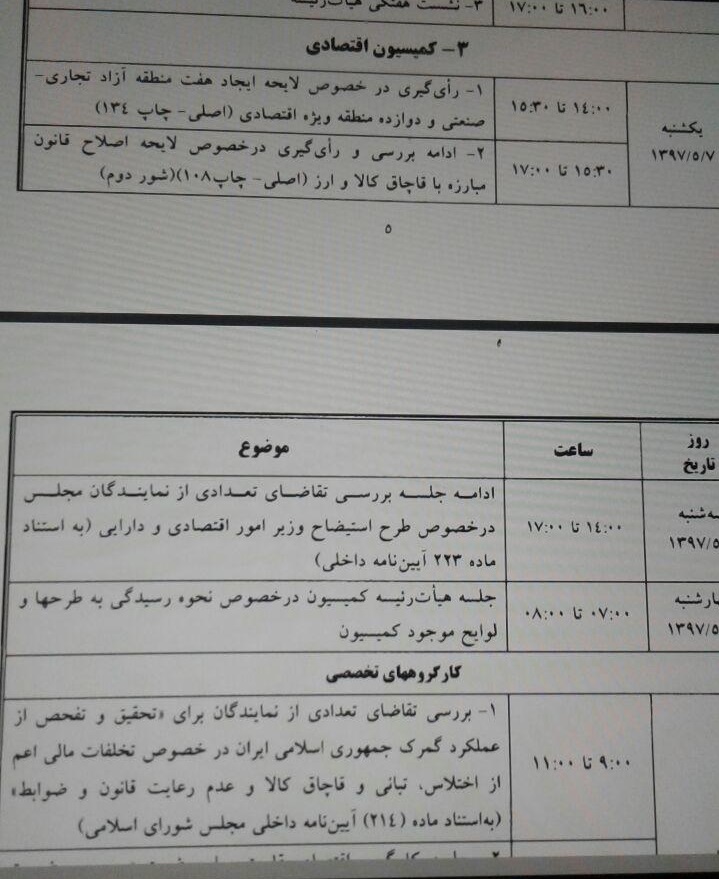 ۱۶:۰۰ تا ۱۷:۰۰
۳- نشست هفتگی هیأت‌رئیسه
۳- کمیسیون اقتصادی
یکشنبه
۱۳۹۷/۵/۷
۱۴:۰۰ تا ۱۵:۳۰
۱- رأی‌گیری در خصوص لایحه ایجاد هفت منطقه آزاد تجاری-
صنعتی و دوازده منطقه ویژه اقتصادی (اصلی- چاپ ۱۳۴)
۱۵:۳۰ تا ۱۷:۰۰
۲- ادامه بررسی و رأی‌گیری درخصوص لایحه اصلاح قانون
مبارزه با قاچاق کالا و ارز (اصلی- چاپ۱۰۸)(شور دوم)
۵
روز
تاریخ
ساعت
موضوع
ـه‌شنبه
۱۳۹۷/۵
۱۴:۰۰ تا ۱۷:۰۰
ادامه جلسه بررسی تقاضای تعدادی از نمایندگان مجلس
درخصوص طرح استیضاح وزیر امور اقتصادی و دارایی (به استناد
ماده ۲۲۳ آیین‌نامه داخلی)
ـارشنبه
۱۳۹۷/۵
۰۷:۰۰ تا ۰۸:۰۰
جلسه هیأت‌رئیسه کمیسیون درخصوص نحوه رسیدگی به طرحها و
لوایح موجود کمیسیون
کارگروههای تخصصی
۹:۰۰ تا ۱۱:۰۰
۱- بررسی تقاضای تعدادی از نمایندگان برای «تحقیق و تفحص از
عملکرد گمرک جمهوری اسلامی ایران در خصوص تخلفات مالی اعم
از اختلاس، تبانی و قاچاق کالا و عدم رعایت قانون و ضوابط»
(به‌استناد ماده (۲۱۴) آیین‌نامه داخلی مجلس شورای اسلامی)